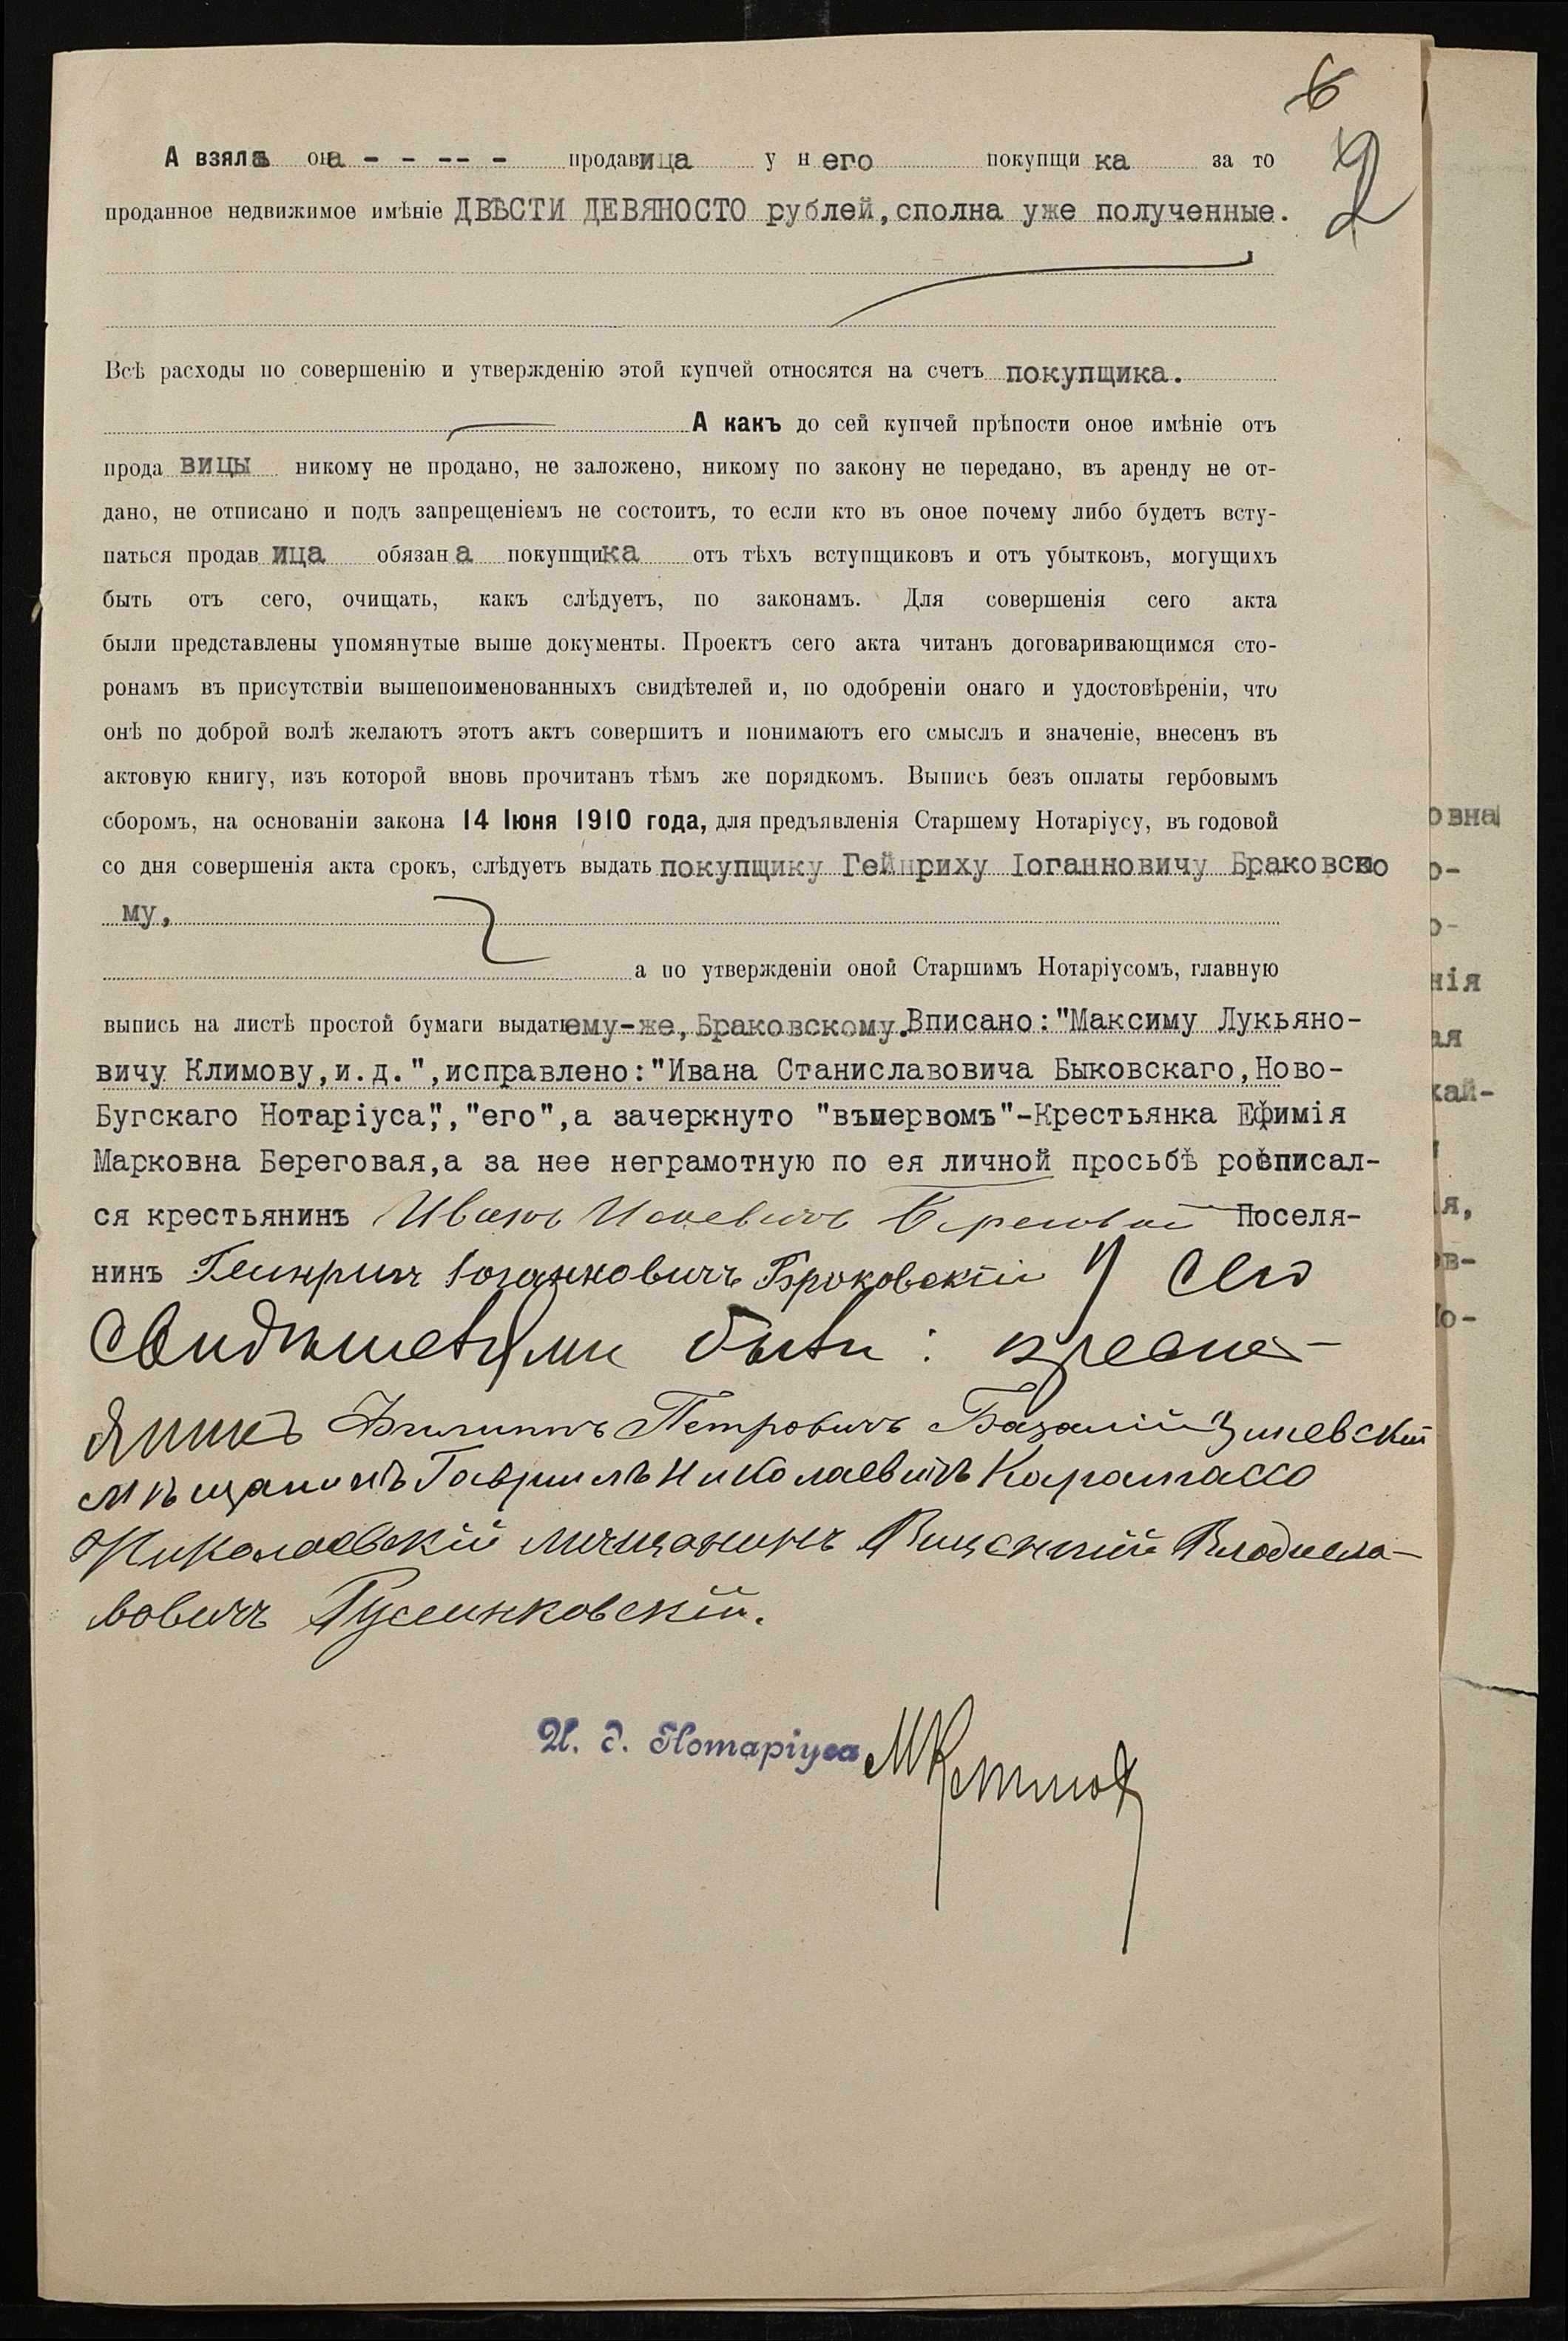 6
2
А взяла она - - -- - продавица у него покупщика за то
проданное недвижимое имѣніе ДВѢСТИ ДЕВЯНОСТО рублей, сполна уже полученные.
Всѣ расходы по совершенію и утвержденію этой купчей относятся на счетъ покупщика.
А какъ до сей купчей прѣпости оное имѣніе отъ
продавицы никому не продано, не заложено, никому по закону не передано, въ аренду не от-
дано, не отписано и подъ запрещеніемъ не состоитъ, то если кто въ оное почему либо будетъ всту-
паться продавица обязана покупщика отъ тѣхъ вступщиковъ и отъ убытковъ, могущихъ
быть отъ сего, очищать, какъ слѣдуетъ, по законамъ. Для совершенія сего акта
были представлены упомянутые выше документы. Проектъ сего акта читанъ договаривающимся сто-
ронамъ въ присутствіи вышепоименованныхъ свидѣтелей и, по одобреніи онаго и удостовѣреніи, что
онѣ по доброй волѣ желаютъ этотъ актъ совершить и понимаютъ его смыслъ и значеніе, внесенъ въ
актовую книгу, изъ которой вновь прочитанъ тѣмъ же порядкомъ. Выпись безъ оплаты гербовымъ
сборомъ, на основаніи закона 14 Іюня 1910 года, для предъявленія Старшему Нотаріусу, въ годовой
со дня совершенія акта срокъ, слѣдуетъ выдать покупщику Гейнриху Іоганновичу Браковско
му,
а по утвержденіи оной Старшимъ Нотаріусомъ, главную
выпись на листѣ простой бумаги выдать ему-же, Браковскому. Вписано: "Максиму Лукьяно-
вичу Климову, и.д.", исправлено: "Ивана Станиславовича Быковскаго, Ново-
Бугскаго Нотаріуса", "его", а зачеркнуто "въ первомъ"-Крестьянка Ефимія
Марковна Береговая, а за нее неграмотную по ея личной просьбѣ росписал-
ся крестьянинъ Иванъ Исаевичъ Береговой Поселя-
нинъ Геинрих Іоганновичъ Броковскій У сего
свидѣтелями были: кресть-
янинъ Филиппъ Петровичъ Базалій Зиневскій
мѣщанинъ Гавриилъ Николаевичъ
Николаевскій мѣщанинъ Вицентій Владисла-
вовичъ
И. д. Нотаріуса МКлимов
овна
о-
о-
нія
ая
кай-
ія,
ов-
о-